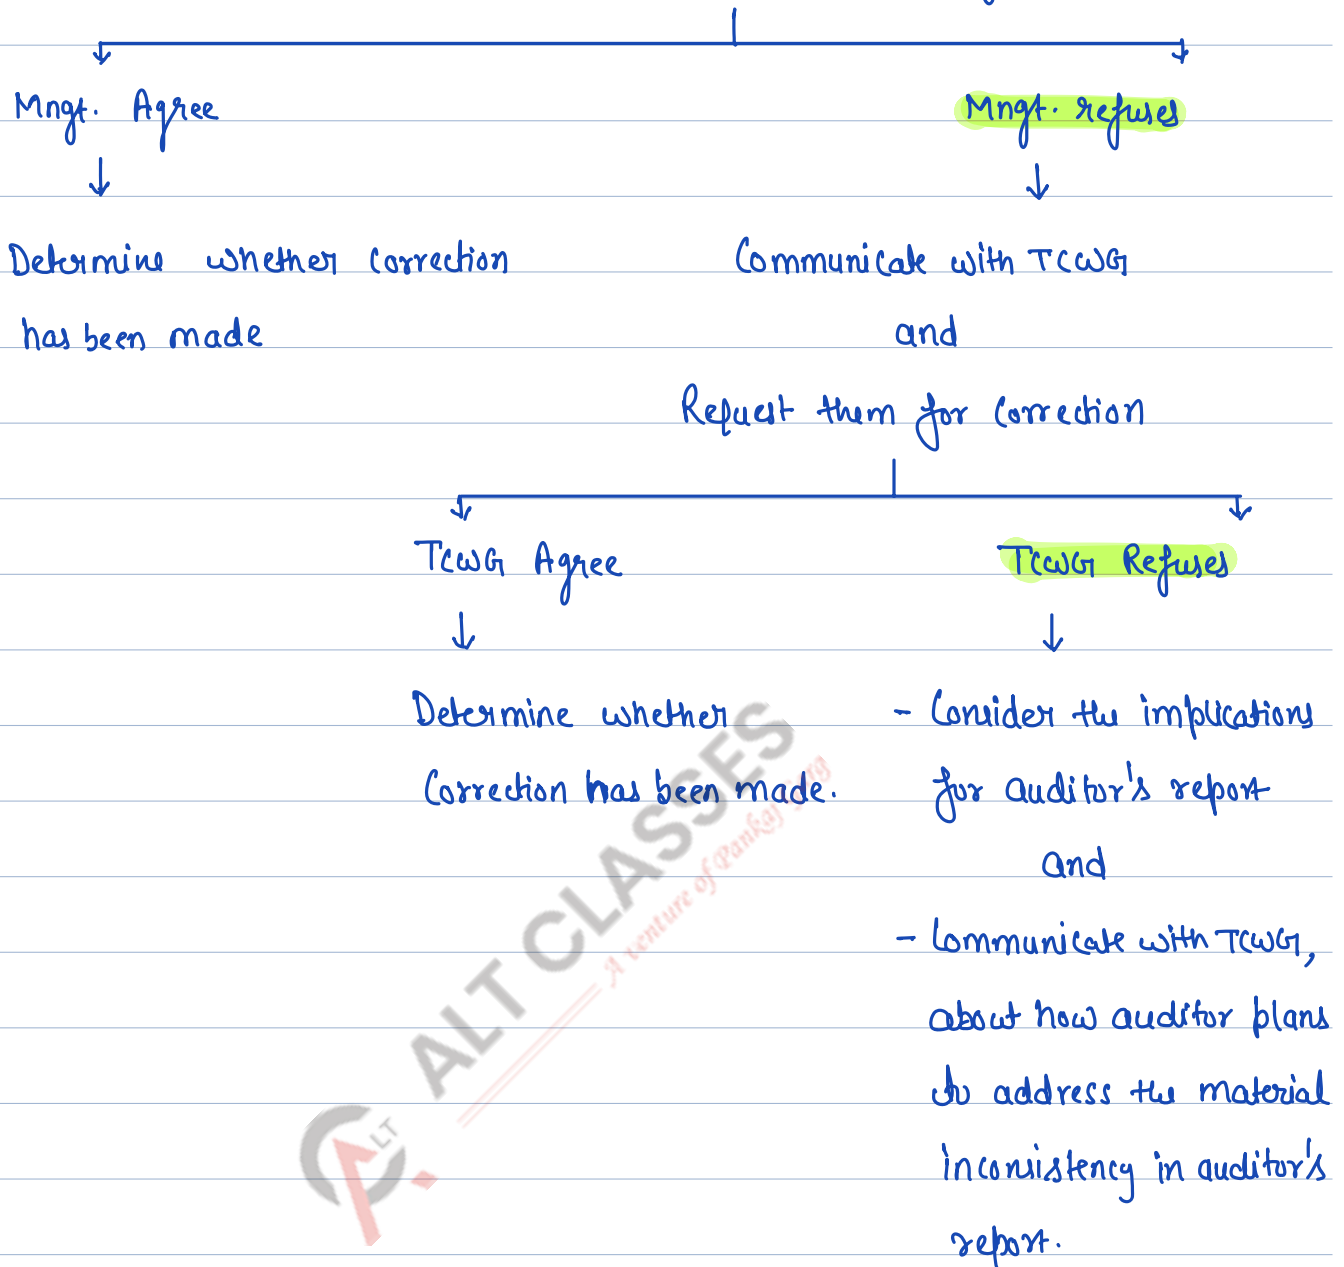 Mngt. Agree
Mngt. refuses
Determine whether correction
has been made
Communicate with TCWG
and
Request them for correction
TCWG Agree
TCWG Refuses
Determine whether
correction has been made.
- Consider the implications
for auditor's report
and
- Communicate with TCWG,
about how auditor plans
to address the material
inconsistency in auditor's
report.
ALT CLASSES
A venture of Pankaj Garg
LT